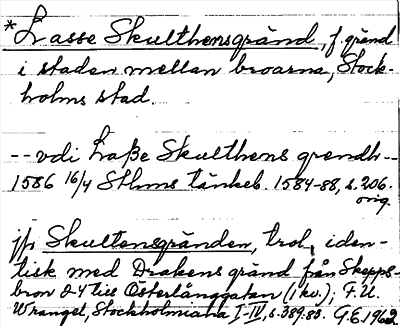 *Lasse Skulthensgränd, f. gränd
i staden mellan broarna, Stock-
holms stad.
-- vdi Laße Skulthens grendh --
1586 16/4 Sthms tänkeb. 1584-88, s. 206.
orig.
jfr Skultensgränden, trol. iden-
tisk med Drakens gränd från Skepps-
bron 24 till Österlånggatan (1 kv.); F.U.
Wrangel, Stockholmiana I-IV, s. 389.83. G.E. 1962